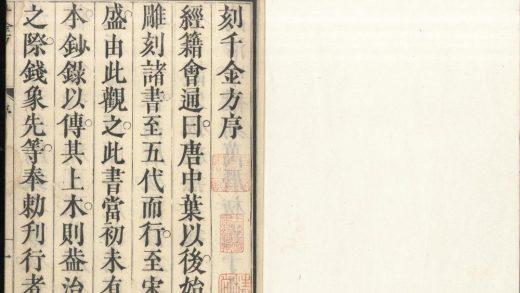 刻千金方序
經籍會通曰唐中葉以後始
雕刻諸書至五代而行至宋
盛由此觀之此書當初未有
本鈔錄以傳其上木則葢治
之際錢象先等奉勅刋行者